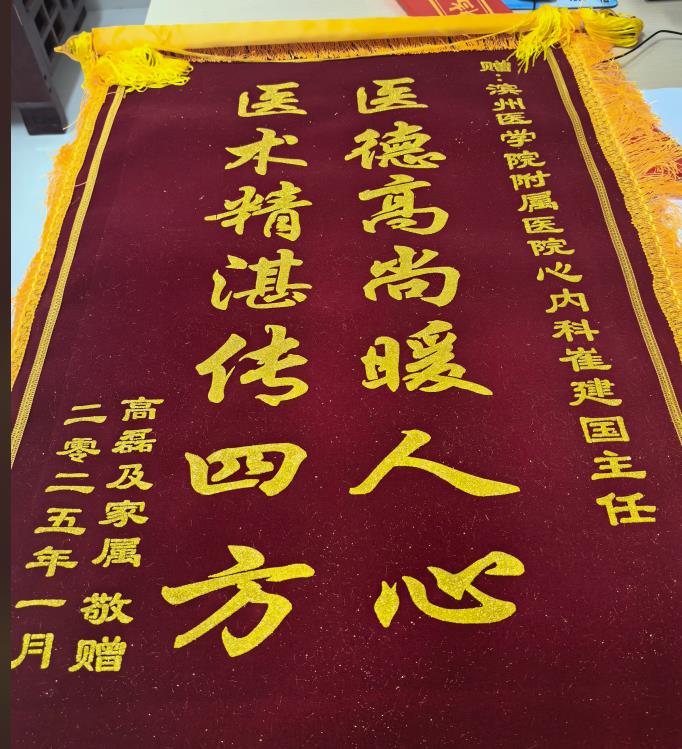 赠:滨州医学院附属医院心内科崔建国主任
医德高尚暖人心
医术精湛传四方
高磊及家属 敬赠
二零二五年一月